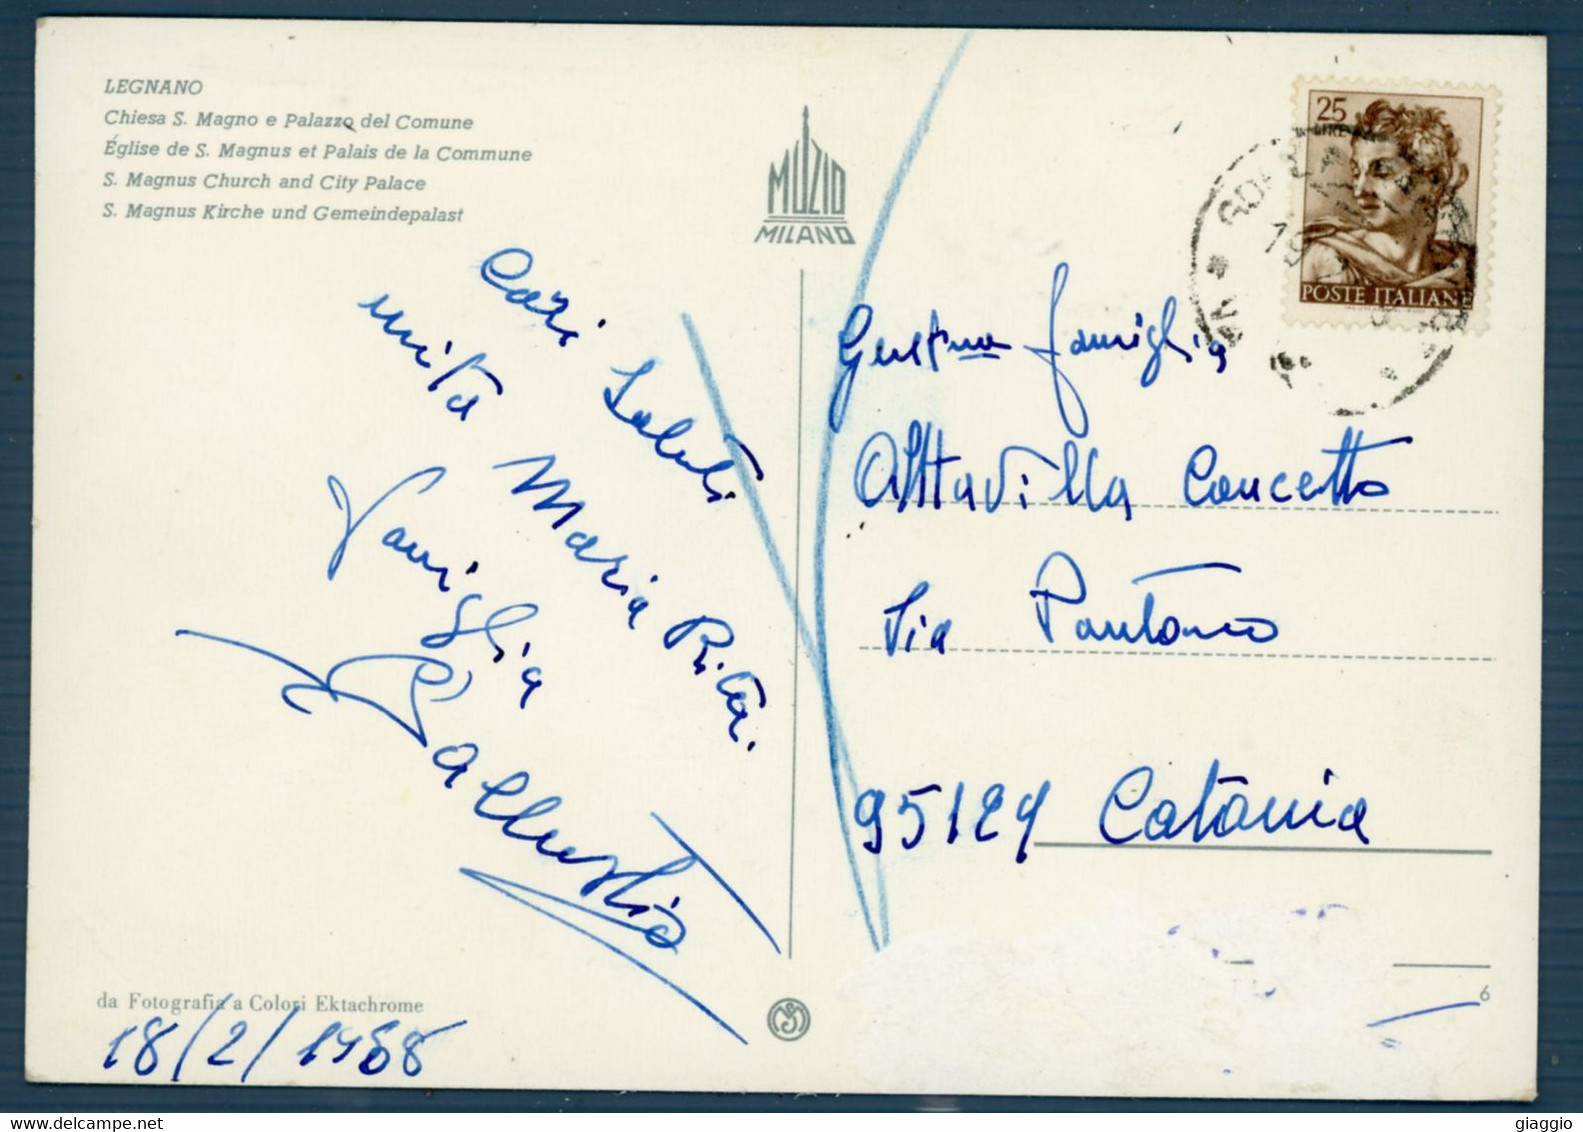 LEGNANO
Chiesa S. Magno e Palazzo del Comune
Église de S. Magnus et Palais de la Commune
S. Magnus Church and City Palace
S. Magnus Kirche und Gemeindepalast
MUZIO
MILANO
25
POSTE ITALIANE
Cari Saluti
unita Maria Rita.
Famiglia
Pallustio
Gent.ma famiglia
Altavilla Concetto
Via Pantano
95129 Catania
da Fotografia a Colori Ektachrome
6
18/2/1968
giaggio